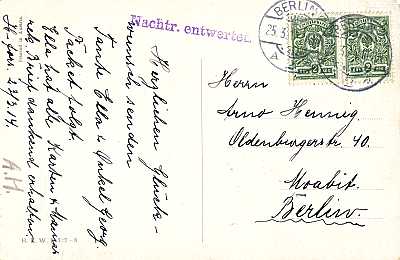 Nachtr. entwertet.
BERLIN
Herzlichen Glück-
wunsch senden
Tante Ella u Onkel Georg
Packet folgt.
Ella hat alle Karten u
Brief dankend erhalten.
A.H.
Herrn
Arno Hennig
Oldenburgerstr. 40.
Moabit
Berlin.